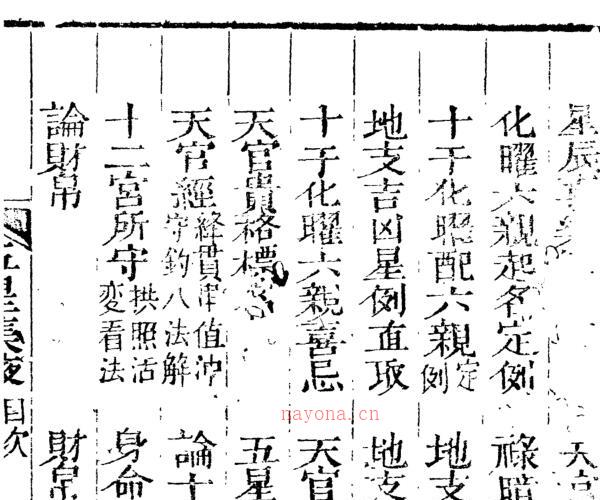 星辰
化曜六親起名定例 祿暗
十干化曜配六親定例 地支
地支吉凶星例直取 地支
十干化曜六親喜忌 天官
天官貴格標名 五星
天官經緯貫串值沖守鈞八法解 論十
十二宮所守拱照活變看法 身命
論財帛 財帛
五星集腋 目次
nayona.cn